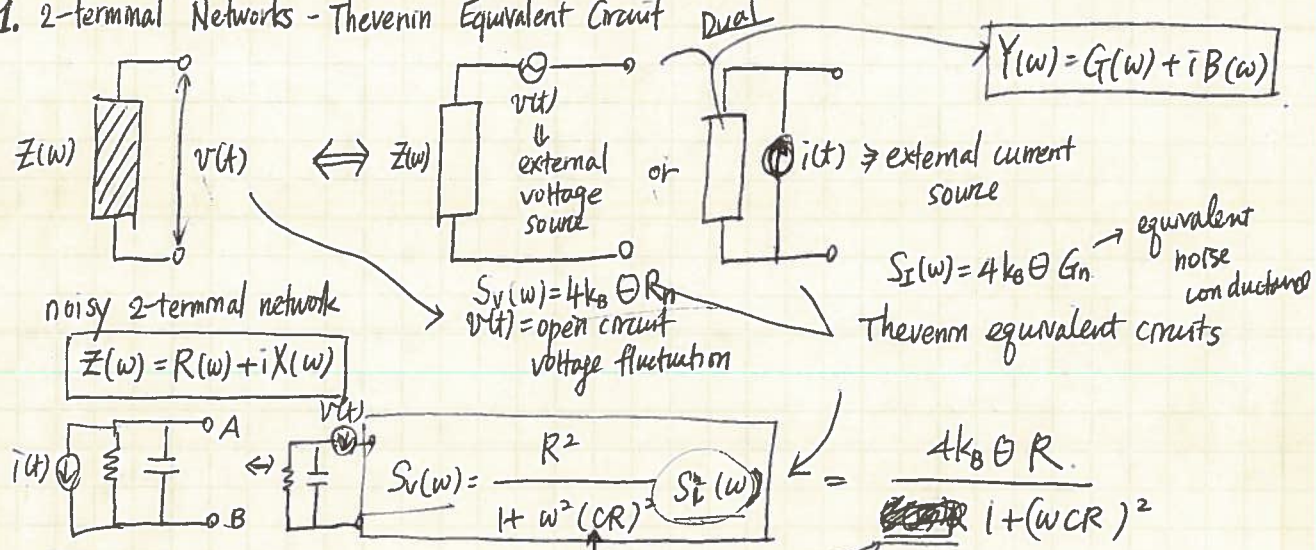 1. 2-terminal Networks - Thevenin Equivalent Circuit Dual
Y(ω) = G(ω) + iB(ω)
Z(ω)
v(t)
⇔
Z(ω)
v(t)
⇓
external
voltage
source
or
i(t) ⇒ external current
source
S_I(ω) = 4k_B Θ G_n → equivalent
noise
conductance
noisy 2-terminal network
S_V(ω) = 4k_B Θ R_n
v(t) = open circuit
voltage fluctuation
Thevenin equivalent circuits
Z(ω) = R(ω) + iX(ω)
i(t)
A
B
⇔
v(t)
S_V(ω) = R² / (1 + ω²(CR)²) S_i(ω) = 4k_B Θ R / (1 + (ωCR)²)